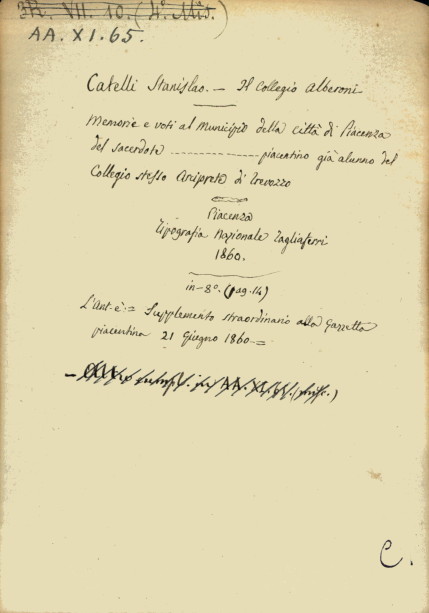 R. VII. 10. (4.° Mis.)
AA. XI. 65.
Catelli Stanislao. — Il Collegio Alberoni
Memorie e voti al Municipio della Città di Piacenza
del sacerdote ———— piacentino già alunno del
Collegio stesso Arciprete di Trevozzo
Piacenza
Tipografia Nazionale Tagliaferri
1860.
in-8° (pag. 14)
L'Ant. è = Supplemento straordinario alla Gazzetta
piacentina 21 Giugno 1860. =
C.